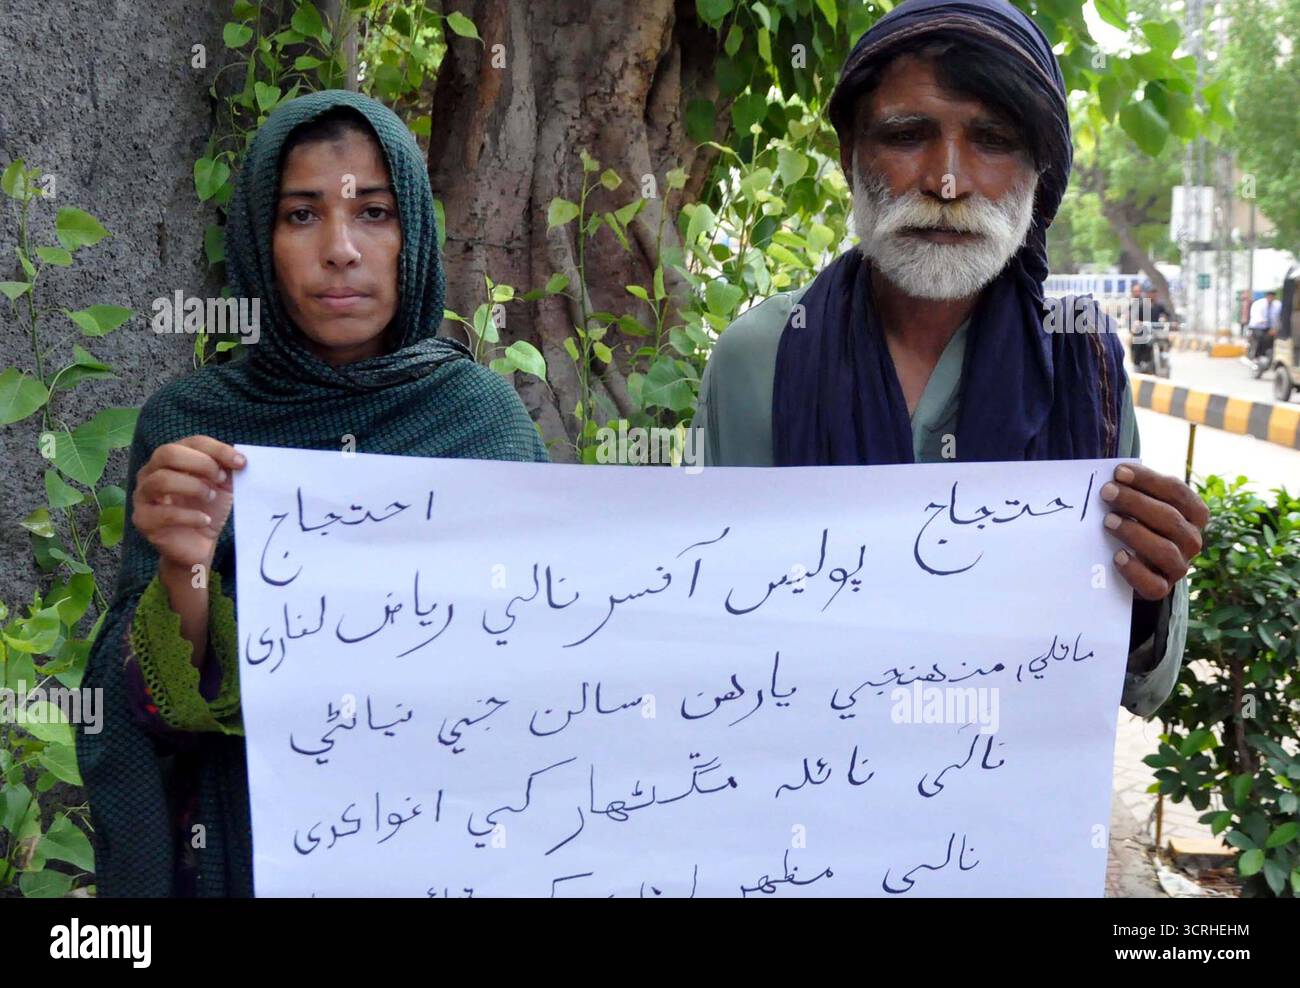 احتجاج احتجاج
پوليس آفسر نالي رياض لغاري
مائلي، منهنجي يارهن سالن جي نياڻي
نالي نائله مگڻهار کي اغوا ڪري
نالي مظهر
alamy
Image ID: 3CRHEHM
www.alamy.com